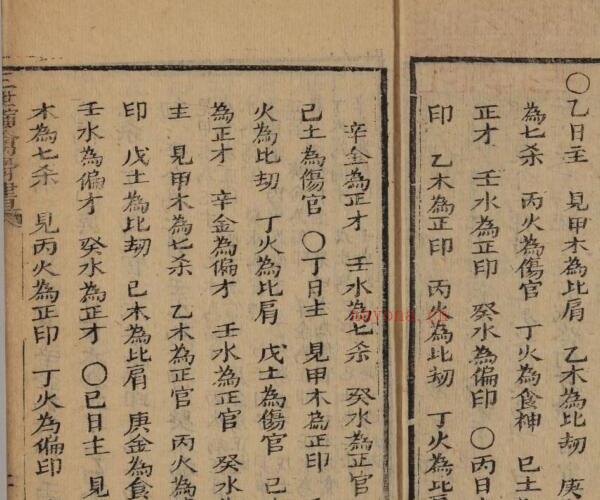 ○乙日主 見甲木為比肩 乙木為比刼 庚
為七杀 丙火為傷官 丁火為食神 己土
正才 壬水為正印 癸水為偏印 ○丙日
印 乙木為正印 丙火為比刼 丁火為比
辛金為正才 壬水為七杀 癸水為正官
己土為傷官 ○丁日主 見甲木為正印
火為比刼 丁火為比肩 戊土為傷官 己
為正才 辛金為偏才 壬水為正官 癸水
主 見甲木為七杀 乙木為正官 丙火為
印 戊土為比刼 己木為比肩 庚金為食
壬水為偏才 癸水為正才 ○己日主 見
木為七杀 見丙火為正印 丁火為偏印